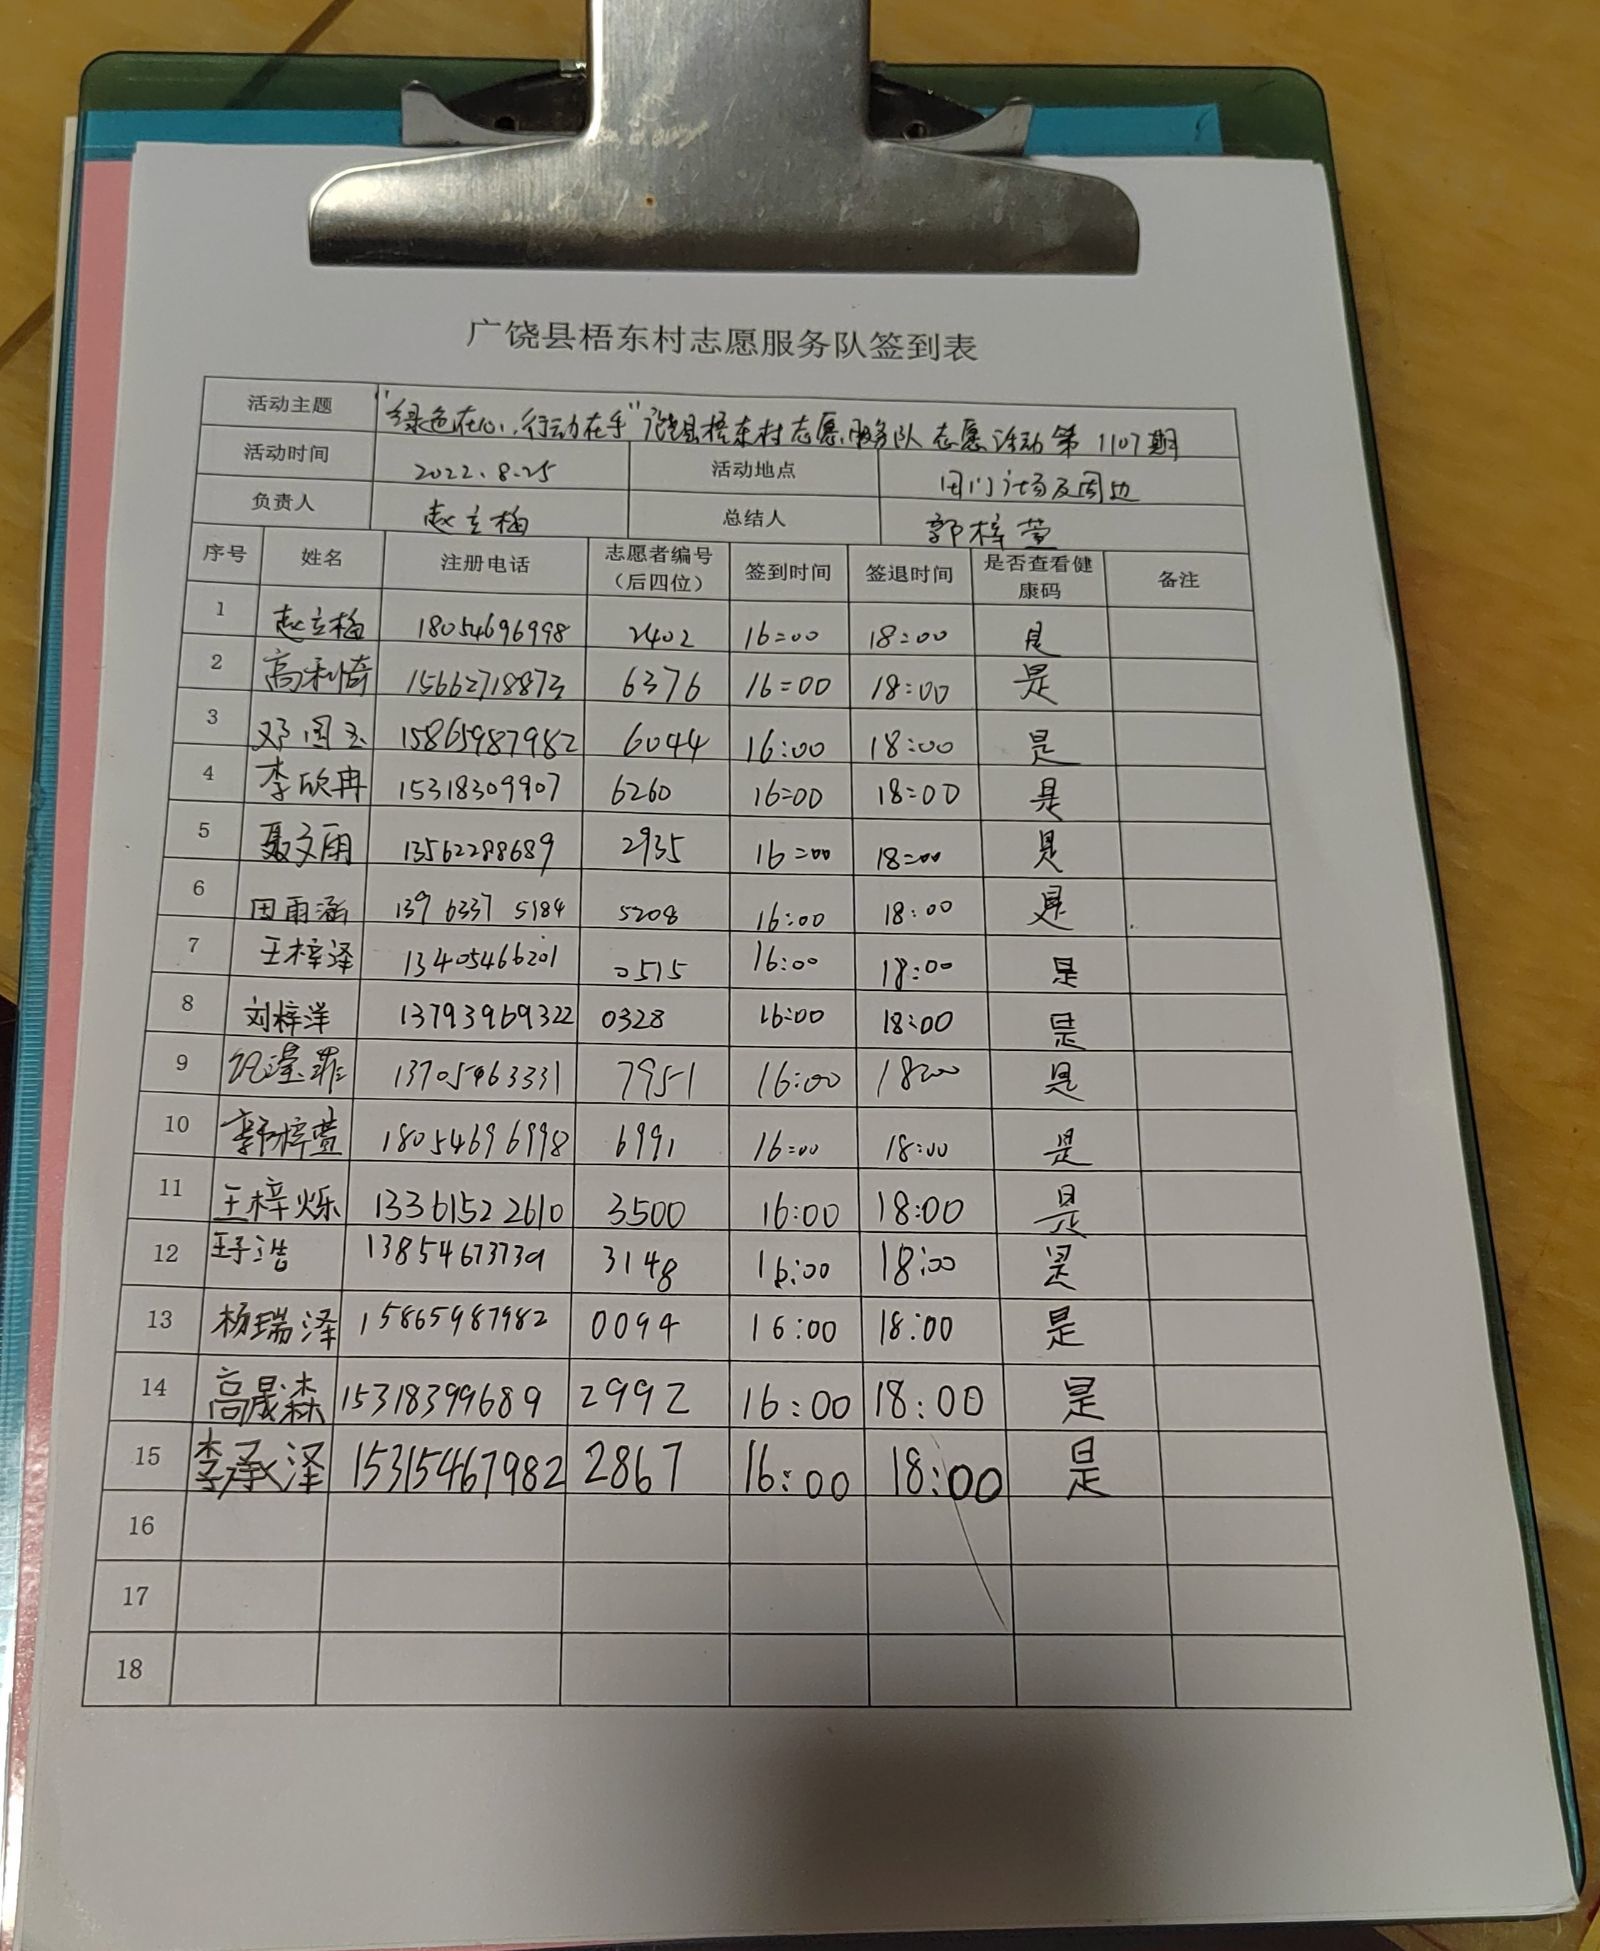 广饶县梧东村志愿服务队签到表
活动主题 "绿色在心,行动在手"广饶县梧东村志愿服务队志愿活动第1107期
活动时间 2022.8.25 活动地点 团门广场及周边
负责人 赵立梅 总结人 郭梓萱
序号 姓名 注册电话 志愿者编号(后四位) 签到时间 签退时间 是否查看健康码 备注
1 赵立梅 18054696998 2402 16:00 18:00 是
2 高利倚 15662718873 6376 16:00 18:00 是
3 邓国玉 15865987982 6044 16:00 18:00 是
4 李欣冉 15318309907 6260 16:00 18:00 是
5 聂文雨 13562288689 2935 16:00 18:00 是
6 田雨涵 139 6337 5184 5208 16:00 18:00 是
7 王梓泽 13405466201 0515 16:00 18:00 是
8 刘梓洋 13793969322 0328 16:00 18:00 是
9 13705463331 7951 16:00 18:00 是
10 郭梓萱 18054696998 6991 16:00 18:00 是
11 王梓烁 13361522610 3500 16:00 18:00 是
12 王子浩 13854673739 3148 16:00 18:00 是
13 杨瑞泽 15865987982 0094 16:00 18:00 是
14 高晟森 15318399689 2992 16:00 18:00 是
15 李承泽 15315467982 2867 16:00 18:00 是
16
17
18